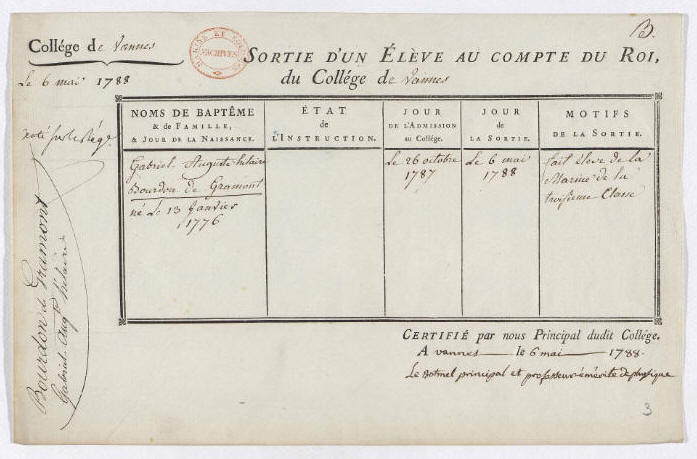 B.
Collége de Vannes
MARINE ET COLONIES
ARCHIVES
SORTIE D'UN ÉLÈVE AU COMPTE DU ROI,
du Collége de Vannes
Le 6 mai 1788
noté sur le Rég.e
Bourdon de Gramont
Gabriel Aug.te hilaire
NOMS DE BAPTÊME
& de FAMILLE,
& JOUR DE LA NAISSANCE.
ÉTAT
de
L'INSTRUCTION.
JOUR
DE L'ADMISSION
au Collége.
JOUR
de
LA SORTIE.
MOTIFS
DE LA SORTIE.
Gabriel Auguste hilaire
Bourdon de Gramont
né Le 13 Janvier
1776
Le 26 octobre
1787
Le 6 mai
1788
fait eleve de la
Marine de la
troisieme Classe
CERTIFIÉ par nous Principal dudit Collége.
A vannes le 6 mai 1788.
Le Botmel principal et professeur émérite de physique
3